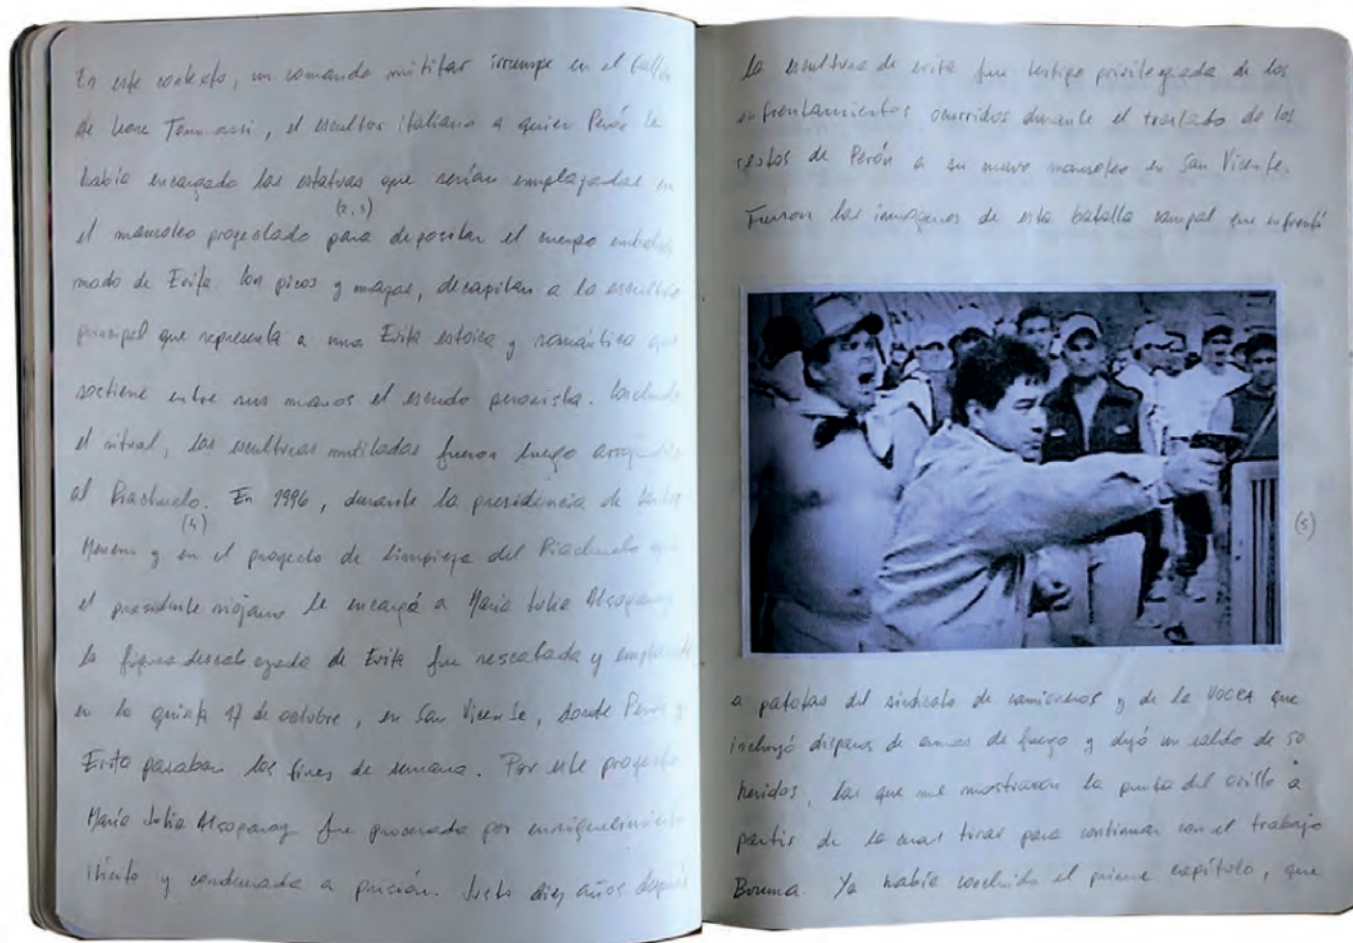 En este contexto, un comando militar irrumpe en el taller
de Leone Tommasi, el escultor italiano a quien Perón le
había encargado las estatuas que serían emplazadas en
(2, 3)
el mausoleo proyectado para depositar el cuerpo embalsa
mado de Evita. Con picos y mazas, decapitan a la escultura
principal que representa a una Evita estoica y romántica que
sostiene entre sus manos el escudo peronista. Concluido
el ritual, las esculturas mutiladas fueron luego arrojadas
al Riachuelo. En 1996, durante la presidencia de Carlos
(4)
Menem y en el proyecto de limpieza del Riachuelo que
el presidente riojano le encargó a María Julia Alsogaray
la figura descabezada de Evita fue rescatada y emplazada
en la quinta 17 de octubre, en San Vicente, donde Perón y
Evita pasaban los fines de semana. Por este proyecto
María Julia Alsogaray fue procesada por enriquecimiento
ilícito y condenada a prisión. Justo diez años después
la escultura de evita fue testigo privilegiada de los
enfrentamientos ocurridos durante el traslado de los
restos de Perón a su nuevo mausoleo en San Vicente.
Fueron las imágenes de esta batalla campal que enfrentó
(5)
a patotas del sindicato de camioneros y de la UOCRA que
incluyó disparos de armas de fuego y dejó un saldo de 50
heridos, las que me mostraron la punta del ovillo a
partir de la cual tirar para continuar con el trabajo
Bruma. Ya había concluido el primer capítulo, que